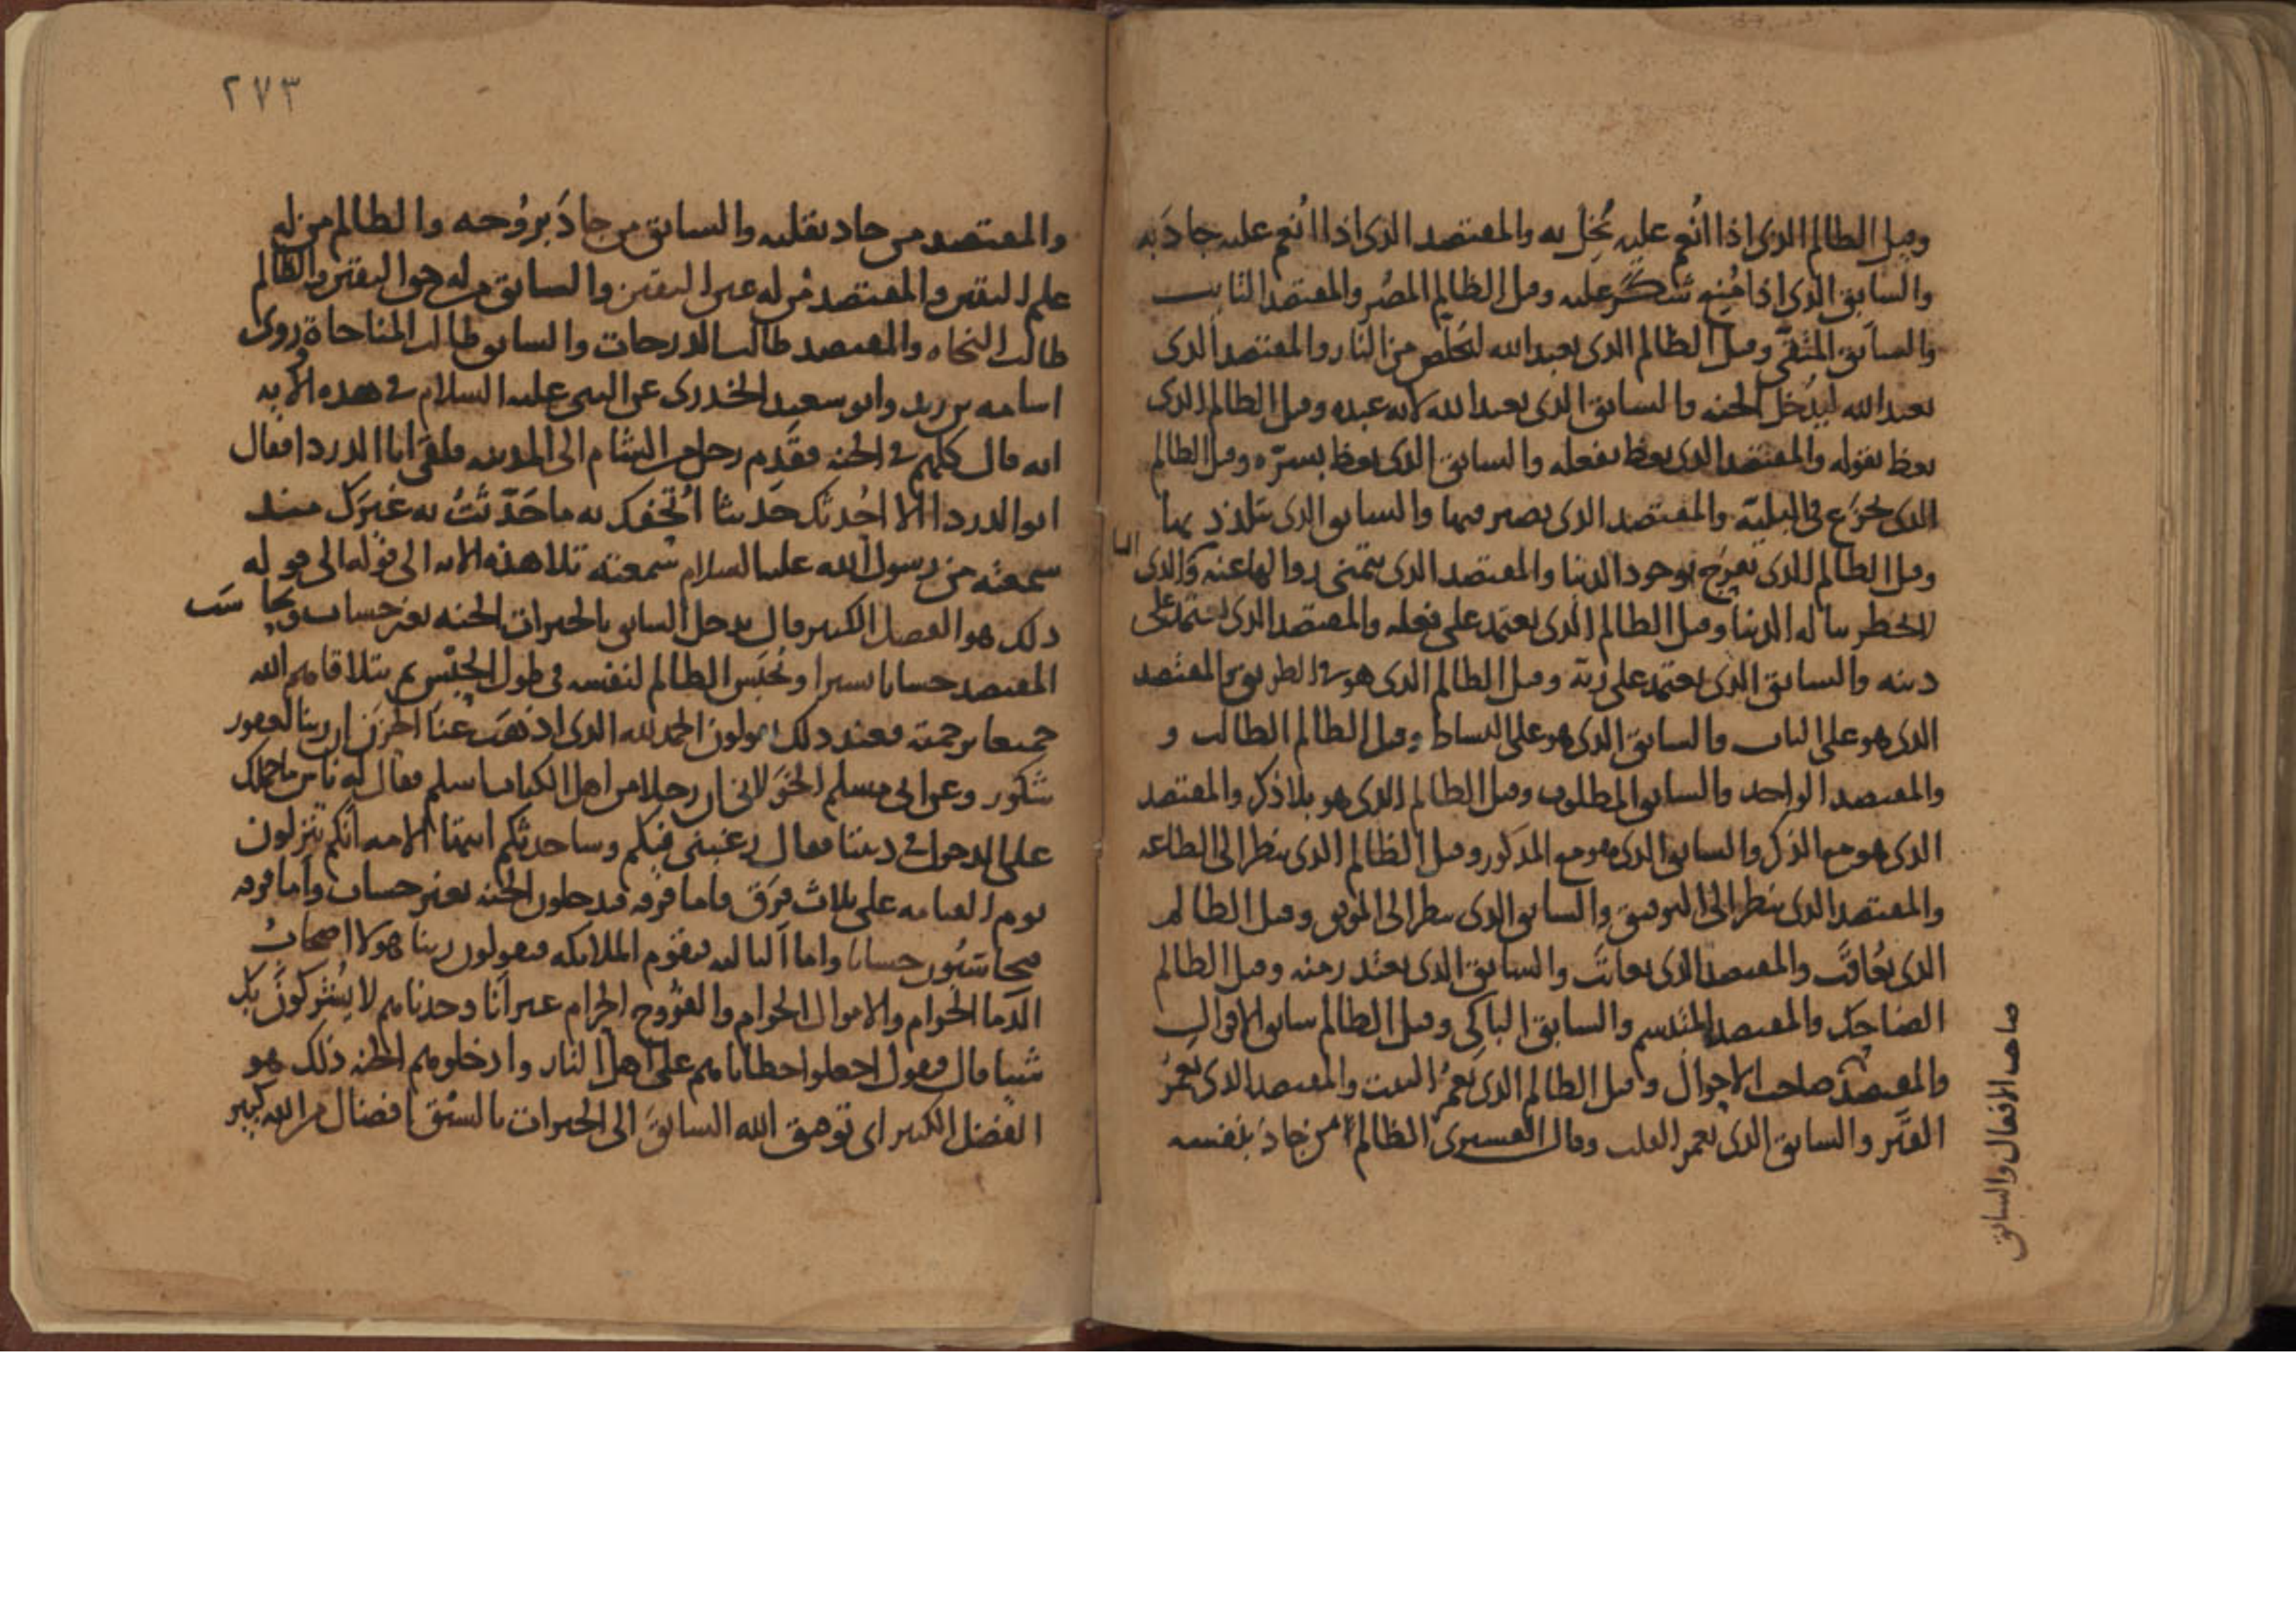 وقيل الظالم الذى اذا انُعم عليه بُخِل به والمقتصد الذى اذا اُنعم عليه جادَ به
والسابق الذى اذا مُنِع شكر عليه وقيل الظالم المصُر والمقتصد التايب
والسابق المتقى وقيل الظالم الذى يعبد الله ليخلص من النار والمقتصد الذى
يعبد الله ليدخل الجنه والسابق الذى يعبد الله لانه عبده وقيل الظالم الذى
يعظ بقوله والمقتصد الذى يعظ بفعله والسابق الذى يعظ بسرّه وقيل الظالم
الذى يجزع فى البليّه والمقتصد الذى يصبر فيها والسابق الذى يتلذذ بها
وقيل الظالم الذى يفرح بوجود الدنيا والمقتصد الذى يتمنى زوالها عنه والذى
لا يخطر بباله الدنيا وقيل الظالم الذى يعتمد على فعله والمقتصد الذى يعتمد على
دينه والسابق الذى يعتمد على ربّه وقيل الظالم الذى هو فى الطريق والمقتصد
الذى هو على الباب والسابق الذى هو على البساط وقيل الظالم الطالب و
والمقتصد الواجد والسابق المطلوب وقيل الظالم الذى هو بلا ذكر والمقتصد
الذى هو مع الذكر والسابق الذى هو مع المذكور وقيل الظالم الذى ينظر الى الطاعه
والمقتصد الذى ينظر الى التوفيق والسابق الذى ينظر الى الموفق وقيل الظالم
الذى يُعاقَب والمقتصد الذى يعاتَب والسابق الذى يعتذر منه وقيل الظالم
الضاحك والمقتصد المتبسم والسابق الباكى وقيل الظالم سابق الاقوال
والمقتصد صاحب الاحوال وقيل الظالم الذى يعمُر البيت والمقتصد الذى يعمُر
القبر والسابق الذى يعمر القلب وقال القسيرى الظالم من جاد بنفسه
صاحب الافعال والسابق
٢٧٣
والمقتصد من جاد بقلبه والسابق من جادَ بروُحه والظالم من له
علم اليقين والمقتصد مَن له عين اليقين والسابق من له حق اليقين والظالم
طالب النجاه والمقتصد طالب الدرجات والسابق طالب المناجاة روى
اسامه بن زيد وابو سعيد الخدرى عن النبى عليه السلام فى هذه الايه
انه قال كلهم فى الجنه فقَدِم رجل من الشام الى المدينه فلقى ابا الدردا فقال
ابو الدردا الا احُدثك حَديثا اُتحفك به ما حَدّثتُ به غيرك منذ
سمعته من رسول الله عليه السلام سمعته تلا هذه الايه الى قوله الى قوله
ذلك هو الفضل الكبير قال يدخل السابق بالخيرات الجنه بغير حساب ويحاسَب
المقتصد حسابا يسيرا ويُحبَس الظالم لنفسه فى طول الحبْس ثم يتلاقاهم الله
جميعا برحمته فعند ذلك يقولون الحمد لله الذى اذهَبَ عنَا الحزَن ان ربنا لغفور
شكور وعن ابى مسلم الخَوَلانى ان رجلا من اهل الكتاب اسلم فقال له ناس ما حملك
على الدخول فى ديننا فقال رغبنى فيكم وساحدثكم ايتها الامه انكم تنزلون
يوم القيامه على ثلاث فِرَق فاما فرقه فيدخلون الجنه بغير حساب واما فرقه
فيحاسَبُون حسابا واما الثالثه فيقوم الملايكه فيقولون ربنا هولا اصحابُ
الدَما الحرام والاموال الحرام والفرُوج الحرام غير انا وجدناهم لا يشركون بك
شيا قال فيقول اجعلوا خطاياهم على اهل النار وادخلوهم الجنه ذلك هو
الفضل الكبير اى توفيق الله السابقَ الى الخيرات بالسَبْق افضال من الله كبير